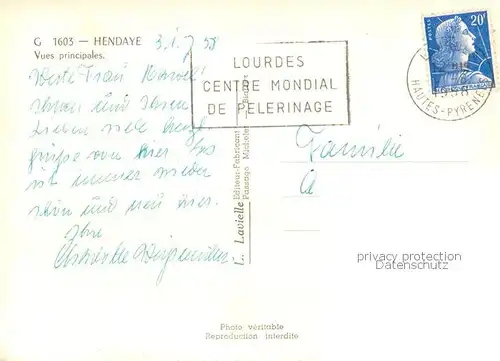 G 1603 — HENDAYE
Vues principales.
3. I. 58
LOURDES
CENTRE MONDIAL
DE PELERINAGE
POSTES
20F
HAUTES-PYRENEES
1958
Werte Frau
Ihnen und Ihren
Lieben viele herzl.
Grüsse von hier. Es
ist immer wieder
schön und neu hier.
Ihre
Familie
L. Lavielle Editeur-Fabricant
Passage Michelet
privacy protection
Datenschutz
Photo véritable
Reproduction interdite